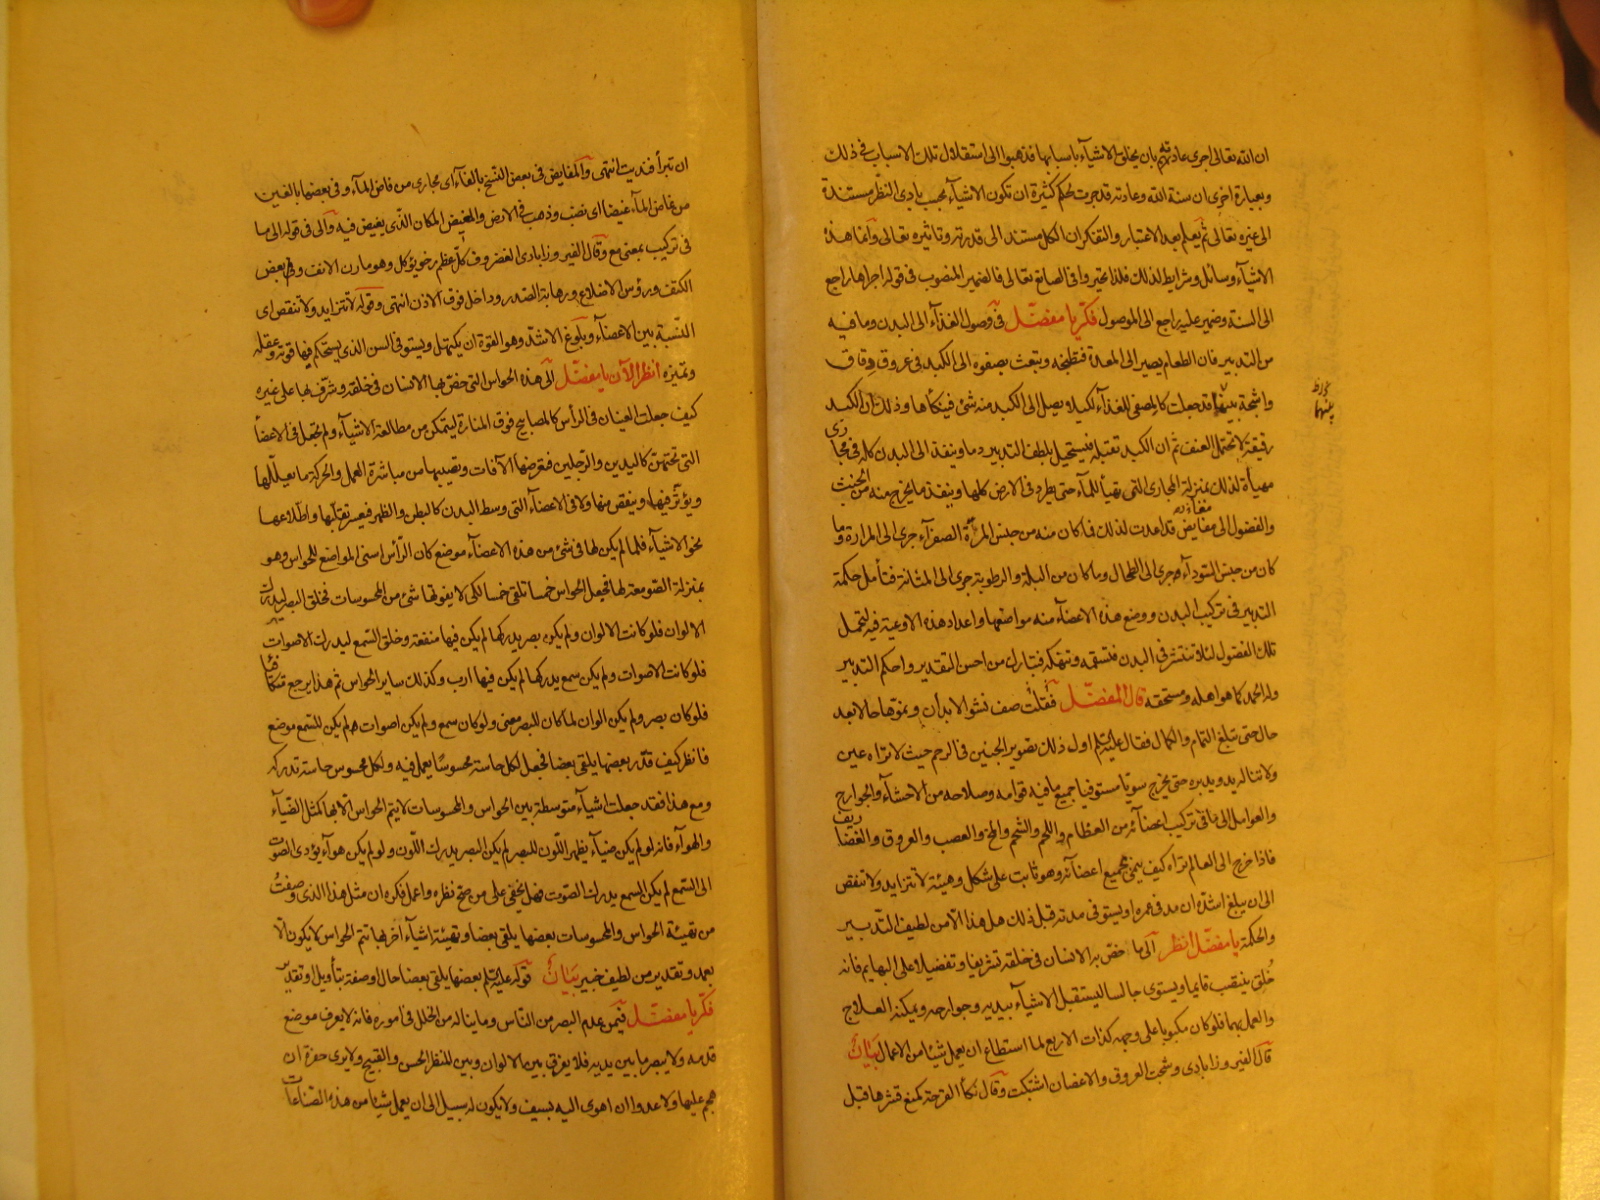 ان الله تعالى اجرى عادته بان يخلق الاشياء باسبابها فذهبوا الى استقلال تلك الاسباب فى ذلك
وبعبارة اخرى ان سنة الله وعادته قد جرت لحكم كثيرة ان تكون الاشياء بحسب بادى النظر مستندة
الى غيره تعالى ثم يعلم بعد الاعتبار والتفكر ان الكل مستند الى قدرته وتاثيره تعالى وانما هذه
الاشياء وسائل وشرايط لذلك فلذا تحيروا فى الصانع تعالى فالضمير المنصوب فى قوله اجراها راجع
الى السنة وضمير عليه راجع الى الموصول فكر يا مفضل فى وصول الغذاء الى البدن وما فيه
من التدبير فان الطعام يصير الى المعدة فتطبخه وتبعث بصفوه الى الكبد فى عروق دقاق
واشجة بينهما قد جعلت كالمصفى للغذاء لكيلا يصل الى الكبد منه شئ فينكأها وذلك ان الكبد
رقيقة لا تحتمل العنف ثم ان الكبد تقبله فيستحيل بلطف التدبير دما وينفذ الى البدن كله فى مجارى
مهيأة لذلك بمنزلة المجارى التى تهيأ للماء حتى يطرد فى الارض كلها وينفذ ما يخرج منه من الخبث
والفضول الى مفايض قد اعدت لذلك فما كان منه من جنس المرة الصفراء جرى الى المرارة وما
كان من جنس السوداء جرى الى الطحال وما كان من البلة والرطوبة جرى الى المثانة فتأمل حكمة
التدبير فى تركيب البدن ووضع هذه الاعضاء منه مواضعها واعداد هذه الاوعية فيه لتحمل
تلك الفضول لئلا تنتشر فى البدن فتسقمه وتنهكه فتبارك من احسن التقدير واحكم التدبير
وله الحمد كما هو اهله ومستحقه قال المفضل فقلت صف نشو الابدان ونموها حالا بعد
حال حتى تبلغ التمام والكمال فقال عليه السلم اول ذلك تصوير الجنين فى الرحم حيث لا تراه عين
ولا تناله يد ويدبره حتى يخرج سويا مستوفيا جميع ما فيه قوامه وصلاحه من الاحشاء والجوارح
والعوامل الى ما فى تركيب اعضائه من العظام واللحم والشحم والمخ والعصب والعروق والغضاريف
فاذا خرج الى العالم تراه كيف ينمى بجميع اعضائه وهو ثابت على شكل وهيئة لا تتزايد ولا تنقص
الى ان يبلغ اشده ان مد فى عمره او يستوفى مدته قبل ذلك هل هذا الا من لطيف التدبير
والحكمة يا مفضل انظر الى ما خص به الانسان فى خلقه تشريفا وتفضيلا على البهايم فانه
خلق ينتصب قايما ويستوى جالسا ليستقبل الاشياء بيديه وجوارحه ويمكنه العلاج
والعمل بهما فلو كان مكبوبا على وجهه كذات الاربع لما استطاع ان يعمل شيئا من الاعمال بيان
قال الفيروزابادى وشجت العروق والاغصان اشتبكت وقال نكأ القرحة كمنع قشرها قبل
ان تبرأ فنديت انتهى والمفايض فى بعض النسخ بالفاء اى مجارى من فاض الماء وفى بعضها بالغين
من غاض الماء غيضا اى نضب وذهب فى الارض والمغيض المكان الذى يغيض فيه والى فى قوله الى ما
فى تركيب بمعنى مع وقال الفيروزابادى الغضروف كل عظم رخو يؤكل وهو مارن الانف وبعض
الكتف ورؤس الاضلاع ورهابة الصدر وداخل فوق الاذن انتهى وقوله لا تتزايد ولا تنقص اى
النسبة بين الاعضاء وبلوغ الاشد وهو القوة ان يكتهل ويستوفى السن الذى يستحكم فيها قوته وعقله
وتميزه انظر الان يا مفضل الى هذه الحواس التى خص بها الانسان فى خلقه وشرف بها على غيره
كيف جعلت العينان فى الرأس كالمصابيح فوق المنارة ليتمكن من مطالعة الاشياء ولم تجعل فى الاعضاء
التى تحتهن كاليدين والرجلين فتعرضها الآفات وتصيبها من مباشرة العمل والحركة ما يعللها
ويؤثر فيها وينقص منها ولا فى الاعضاء التى وسط البدن كالبطن والظهر فيعسر تقلبها واطلاعها
نحو الاشياء فلما لم يكن لها فى شئ من هذه الاعضاء موضع كان الرأس اسنى المواضع للحواس وهو
بمنزلة الصومعة لها فجعل الحواس خمسا تلقى خمسا لكى لا يفوتها شئ من المحسوسات فخلق البصر ليدرك
الالوان فلو كانت الالوان ولم يكن بصر يدركها لم يكن فيها منفعة وخلق السمع ليدرك الاصوات
فلو كانت الاصوات ولم يكن سمع يدركها لم يكن فيها ارب وكذلك ساير الحواس ثم هذا يرجع متكافئا
فلو كان بصر ولم يكن الوان لما كان للبصر معنى ولو كان سمع ولم يكن اصوات لم يكن للسمع موضع
فانظر كيف قدر بعضها يلقى بعضا فجعل لكل حاسة محسوسا يعمل فيه ولكل محسوس حاسة تدركه
ومع هذا فقد جعلت اشياء متوسطة بين الحواس والمحسوسات لا يتم الحواس الا بها كمثل الضياء
والهواء فانه لو لم يكن ضياء يظهر اللون للبصر لم يكن البصر يدرك اللون ولو لم يكن هواء يؤدى الصوت
الى السمع لم يكن السمع يدرك الصوت فهل يخفى على من صح نظره واعمل فكره ان مثل هذا الذى وصفت
من تهيئة الحواس والمحسوسات بعضها يلقى بعضا وتهيئة اشياء اخر بها تتم الحواس لا يكون الا
بعمد وتقدير من لطيف خبير بيان قوله عليه السلم بعضها يلقى بعضا حال او صفة بتأويل او تقدير
فكر يا مفضل فيمن عدم البصر من الناس وما يناله من الخلل فى اموره فانه لا يعرف موضع
قدمه ولا يبصر ما بين يديه فلا يفرق بين الالوان وبين المنظر الحسن والقبيح ولا يرى حفرة ان
هجم عليها ولا عدوا ان اهوى اليه بسيف ولا يكون له سبيل الى ان يعمل شيئا من هذه الصناعات